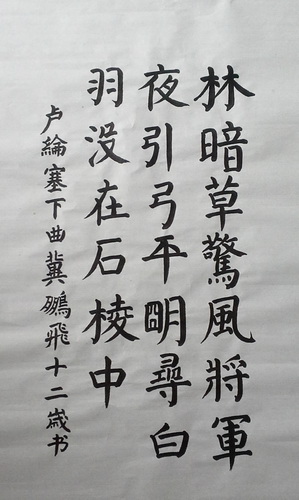 林暗草驚風將軍
夜引弓平明尋白
羽没在石棱中
卢綸塞下曲冀鵬飛十二岁书